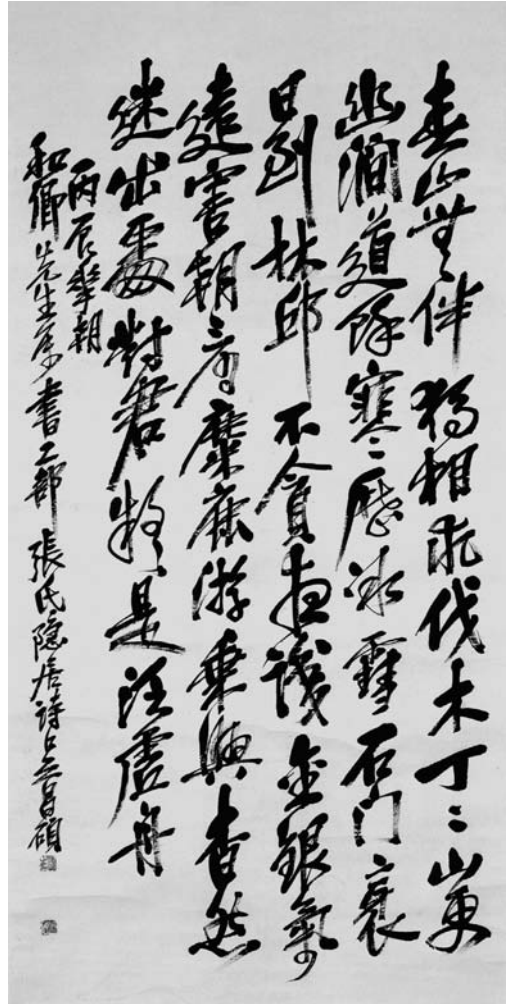 春山無伴獨相求伐木丁〻山更
幽澗道餘寒歷冰雪石門衺
日到林邱不貪夜識金銀氣
遠害朝看麋鹿游乘興杳然
迷出處對君疑是泛虛舟
丙辰朝
和卿先生屬書工部張氏隱居詩吳昌碩